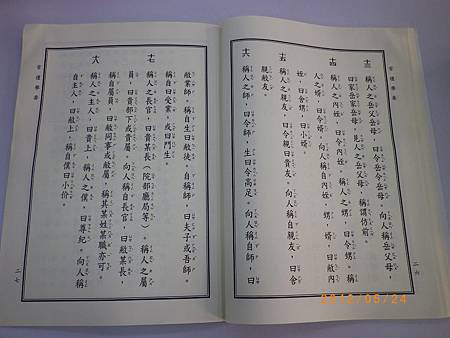 常禮舉要
十三 稱人之岳父母，曰令岳令岳母。向人稱岳父母，
曰家岳家岳母。見人之岳父母，稱謂仿前。
十四 稱人之內姪，曰令內姪。稱人之甥，曰令甥。稱
人之婿，曰令婿，向人稱自內姪，甥，婿，曰敝內
姪，曰舍甥，曰小婿。
十五 稱人之親友，曰令親曰貴友。向人稱自親友，曰舍
親敝友。
十六 稱人之師，曰令師，生曰令高足。向人稱自師，曰
二六
敝業師。稱自生曰敝徒。自稱師，曰夫子或吾師。
稱自曰受業，或曰門生。
十七 稱人之長官，曰貴某長（院部廳局等）。稱人之屬
員，曰貴部下或貴屬。向人稱自長官，曰敝某長，
稱自屬員，曰敝同事或敝屬，稱其某姓某職亦可。
十八 稱人之主人，曰貴上，稱人之僕，曰尊紀。向人稱
自主人，曰敝上，稱自僕曰小价。
常禮舉要
二七
2016/05/24